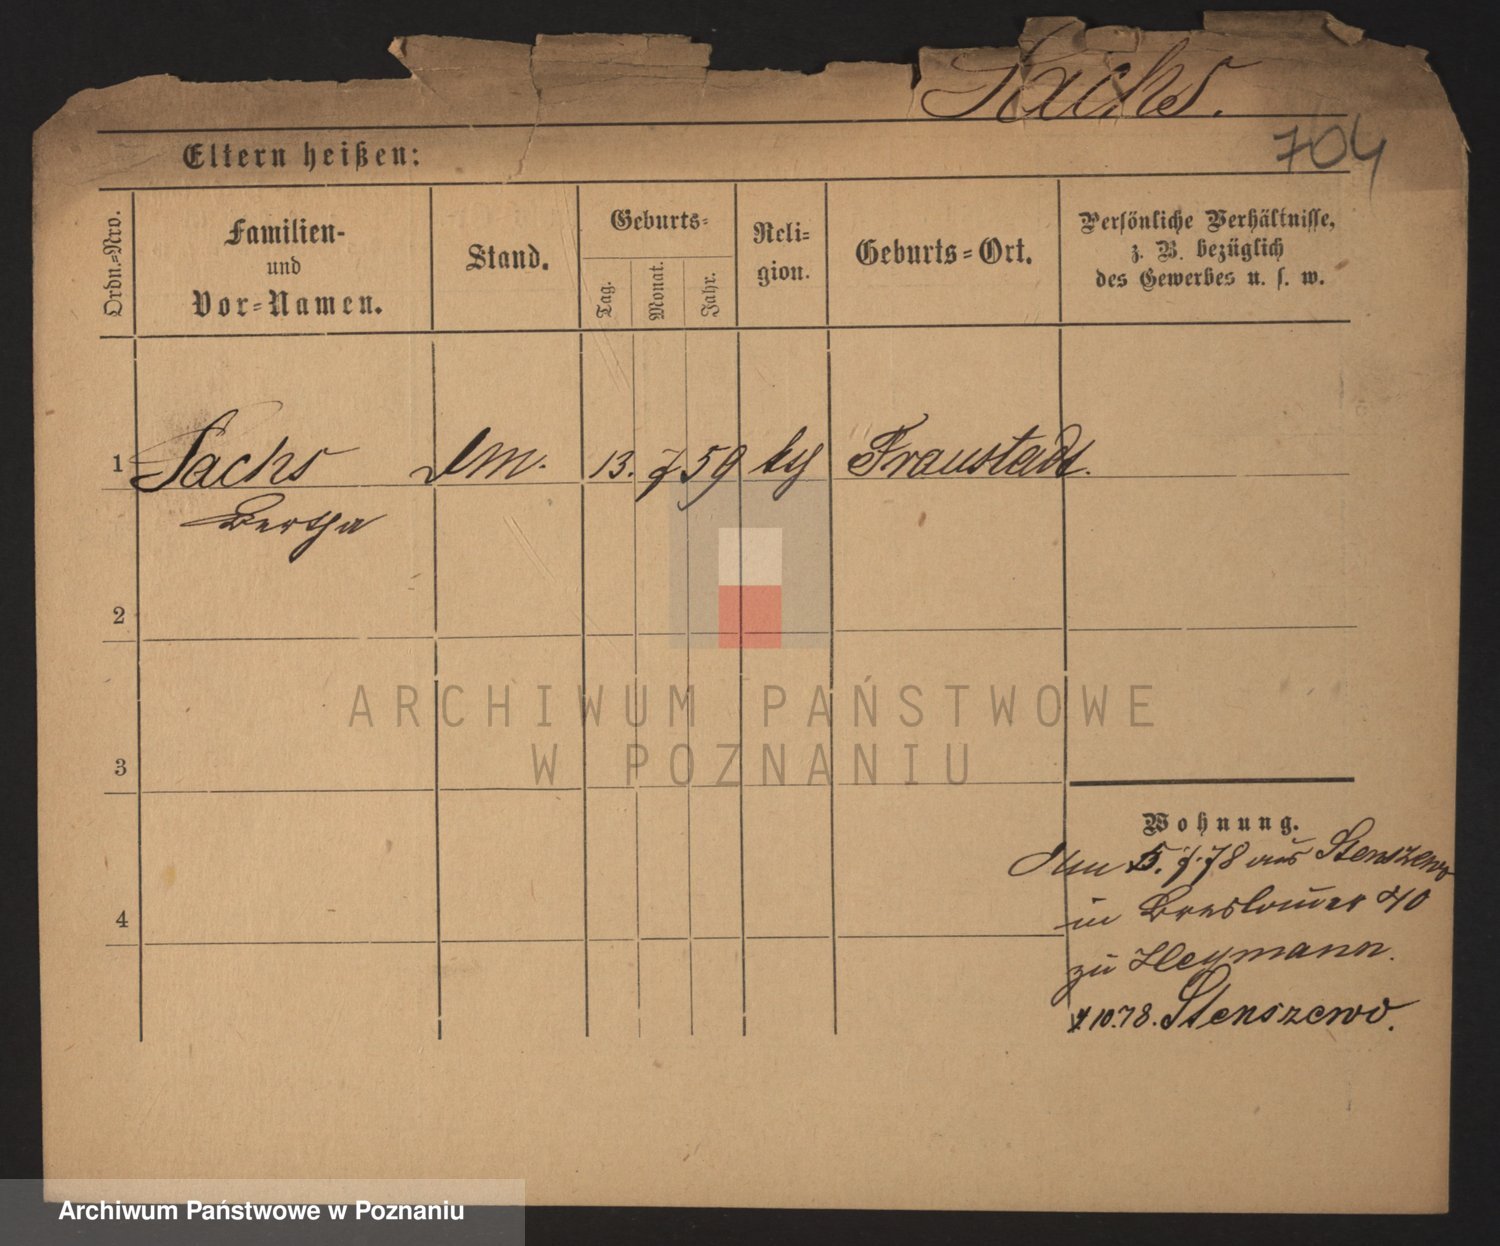 Sachs.
704
Eltern heißen:
Ordn.=Nro.
Familien-
und
Vor=Namen.
Stand.
Geburts=
Tag.
Monat.
Jahr.
Reli=
gion.
Geburts=Ort.
Persönliche Verhältnisse,
z. B. bezüglich
des Gewerbes u. s. w.
1 Sachs 13. 7 59 Fraustadt.
Bertha
2
3
4
Wohnung.
5. 7. 78 aus Stenszewo
in Breslauer 40
zu Heymann.
10.78. Stenszewo.
ARCHIWUM PAŃSTWOWE
W POZNANIU
Archiwum Państwowe w Poznaniu